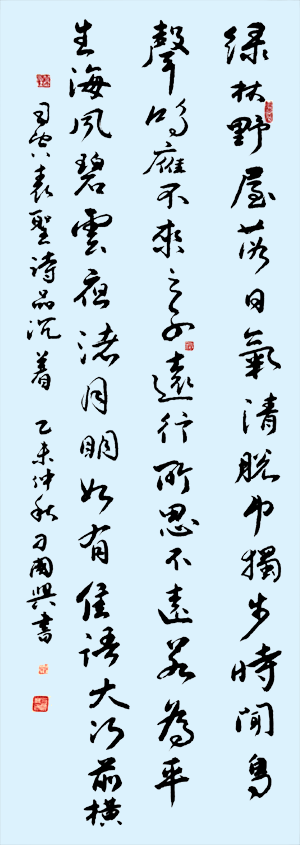 绿林野屋落日氣清脱巾獨步時聞鳥
聲鴻雁不來之子遠行所思不遠若為平
生海風碧雲夜渚月明如有佳語大河前横
司空表聖詩品沉着 乙未仲秋刁國興書